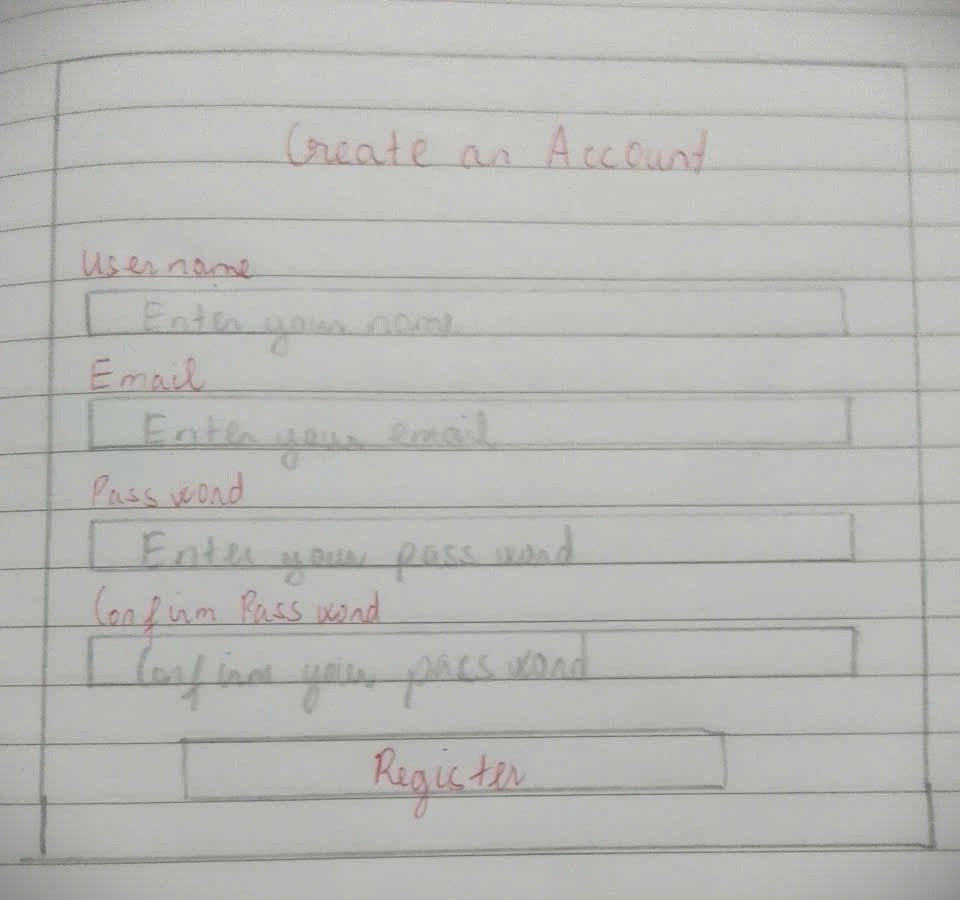 Create an Account
Username
Enter your name
Email
Enter your email
Password
Enter your password
Confirm Password
Confirm your password
Register